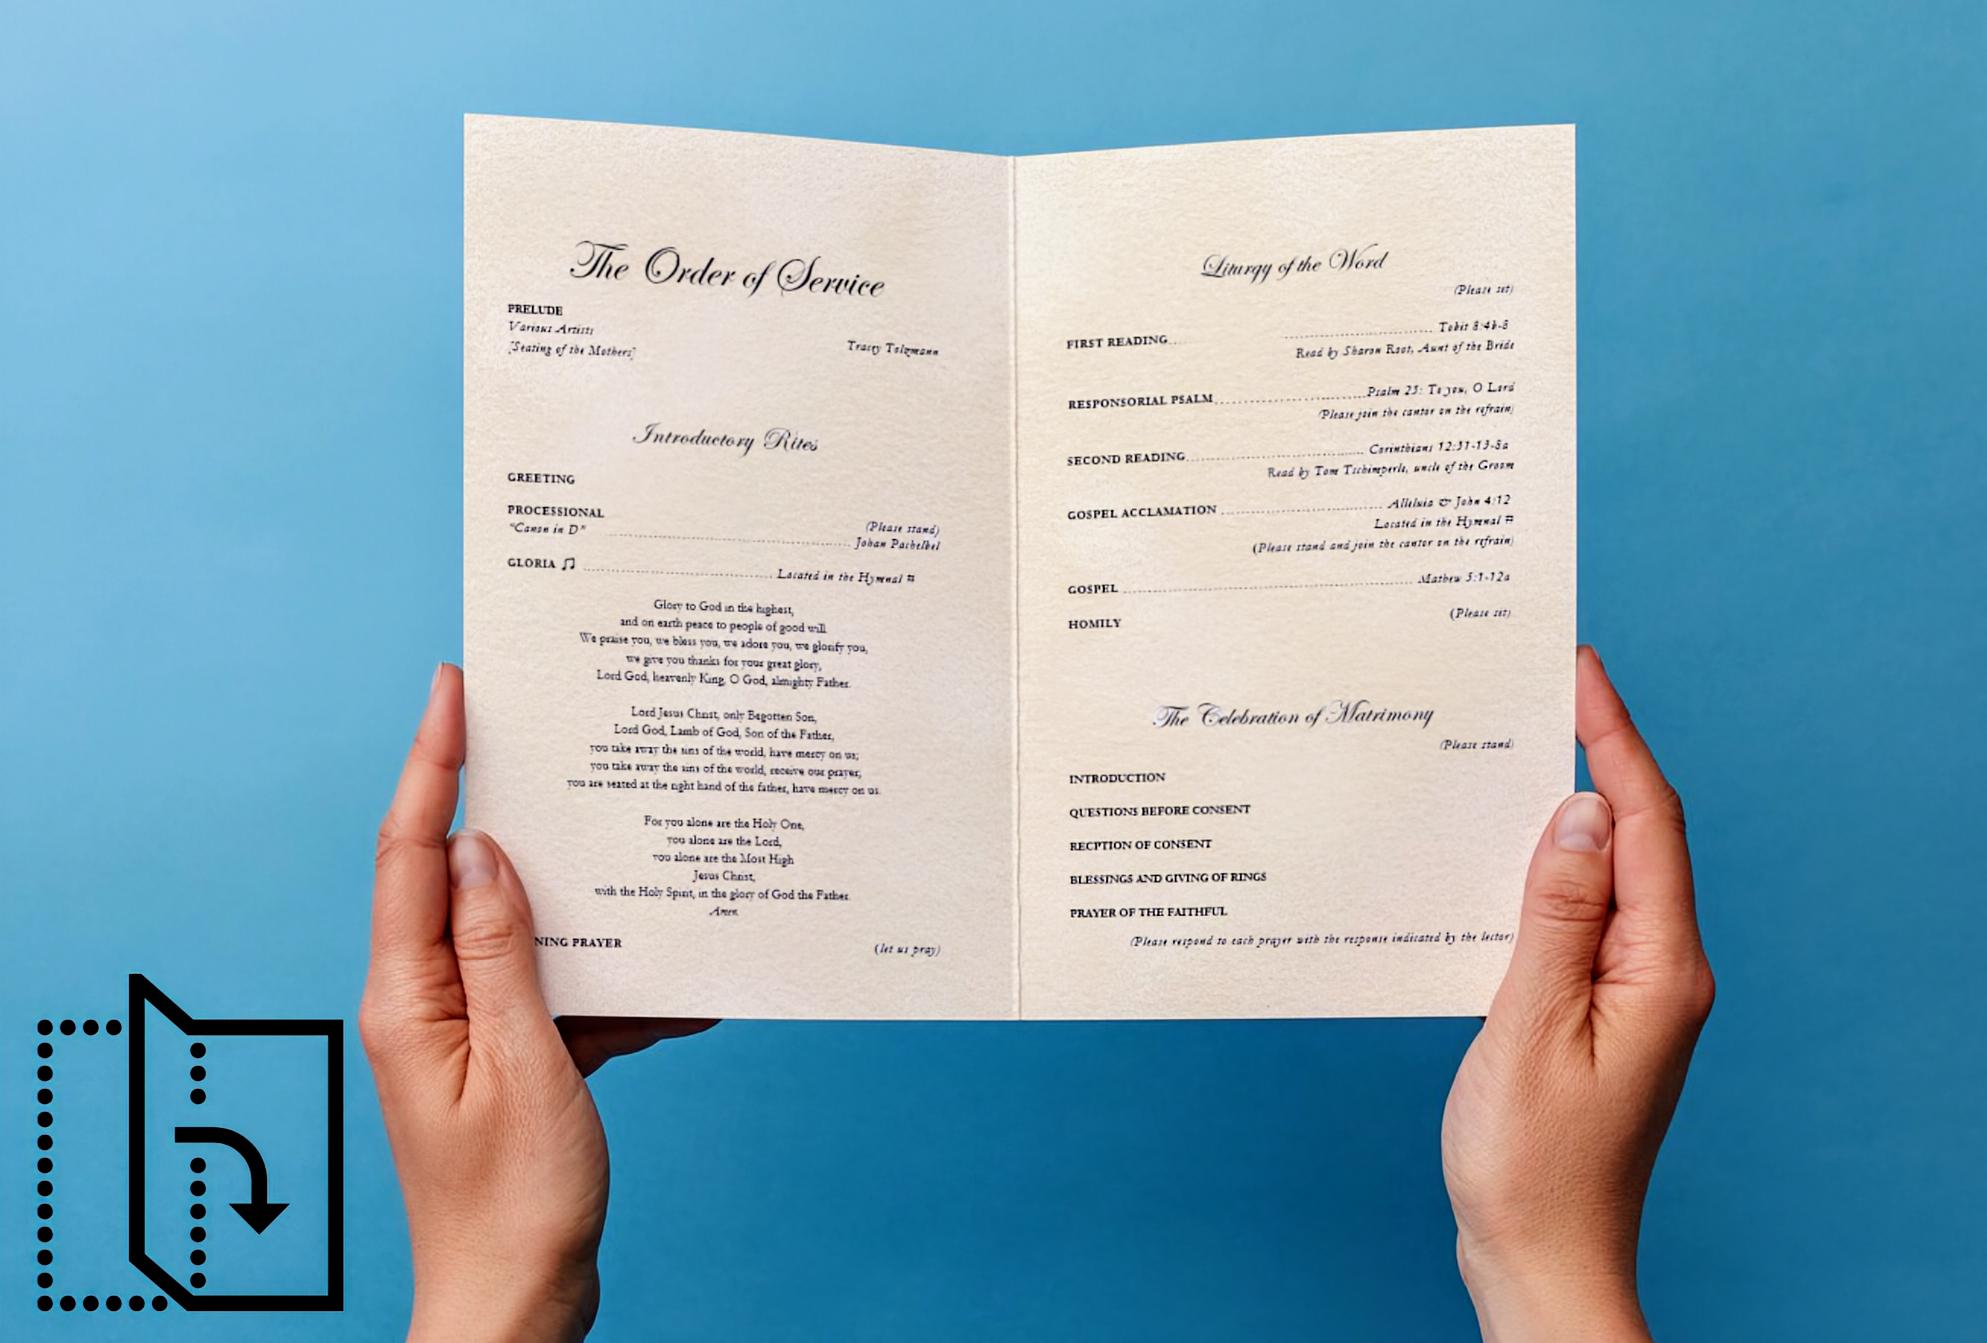 The Order of Service
PRELUDE
Various Artists
[Seating of the Mothers] Tracey Tolzmann
Introductory Rites
GREETING
PROCESSIONAL
(Please stand)
"Canon in D" Johan Pachelbel
GLORIA ♫ Located in the Hymnal #
Glory to God in the highest,
and on earth peace to people of good will.
We praise you, we bless you, we adore you, we glorify you,
we give you thanks for your great glory,
Lord God, heavenly King, O God, almighty Father.
Lord Jesus Christ, only Begotten Son,
Lord God, Lamb of God, Son of the Father,
you take away the sins of the world, have mercy on us;
you take away the sins of the world, receive our prayer;
you are seated at the right hand of the father, have mercy on us.
For you alone are the Holy One,
you alone are the Lord,
you alone are the Most High
Jesus Christ,
with the Holy Spirit, in the glory of God the Father.
Amen.
NING PRAYER (let us pray)
Liturgy of the Word
(Please sit)
FIRST READING Tobit 8:4b-8
Read by Sharon Root, Aunt of the Bride
RESPONSORIAL PSALM Psalm 25: To you, O Lord
(Please join the cantor on the refrain)
SECOND READING Corinthians 12:31-13-8a
Read by Tom Tschimperle, uncle of the Groom
GOSPEL ACCLAMATION Alleluia & John 4:12
Located in the Hymnal #
(Please stand and join the cantor on the refrain)
GOSPEL Mathew 5:1-12a
(Please sit)
HOMILY
The Celebration of Matrimony
(Please stand)
INTRODUCTION
QUESTIONS BEFORE CONSENT
RECPTION OF CONSENT
BLESSINGS AND GIVING OF RINGS
PRAYER OF THE FAITHFUL
(Please respond to each prayer with the response indicated by the lector)